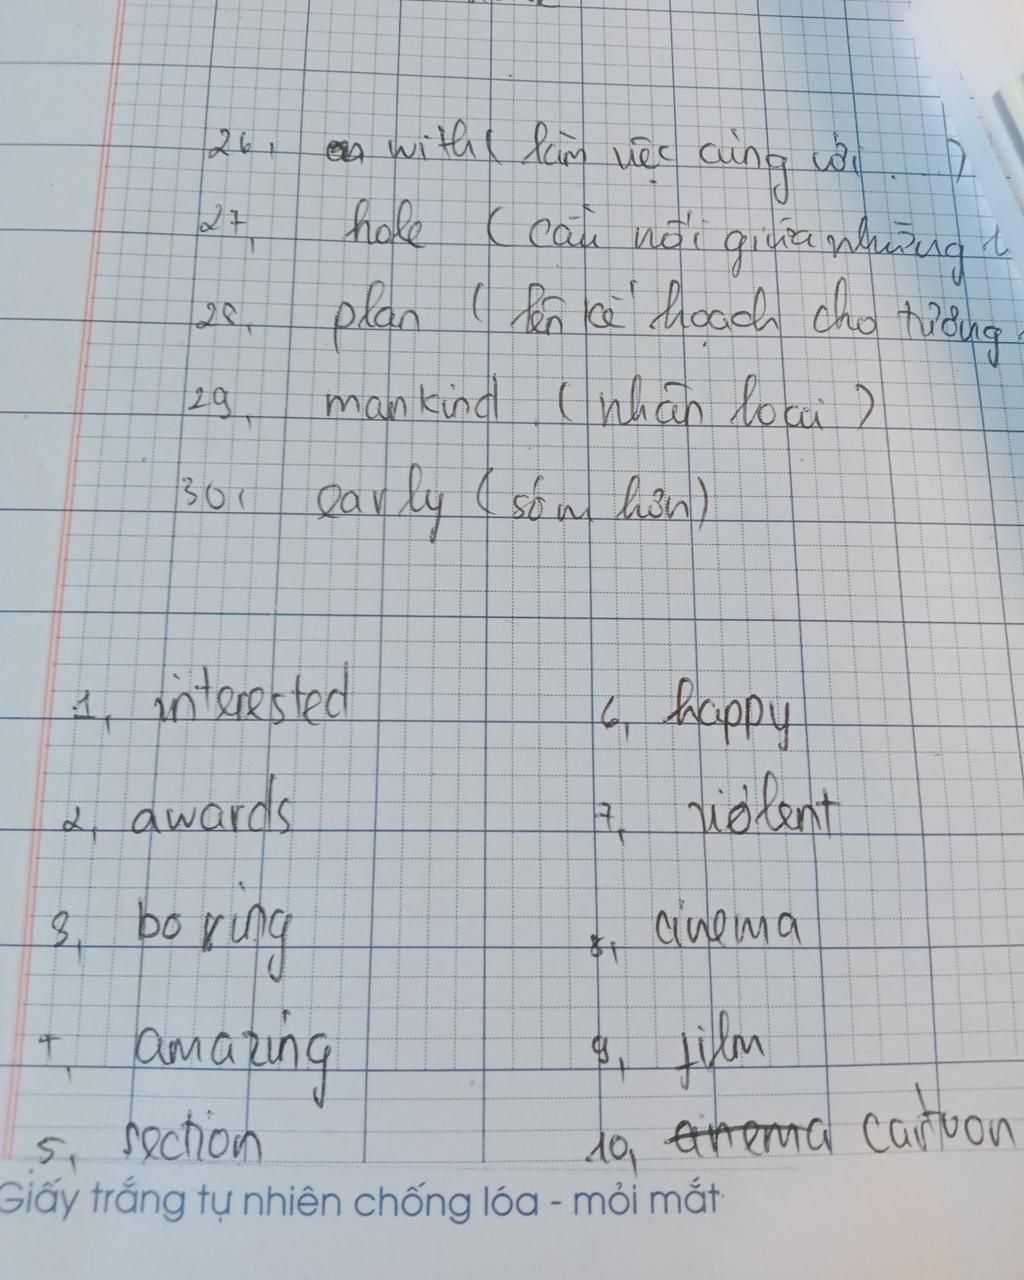 26, with ( làm việc cùng với . )
27, hole ( cầu nối giữa những t
28, plan ( lên kế hoạch cho tương
29, mankind ( nhân loại )
30, early ( sớm hơn )
1, interested
2, awards
3, boring
4, amazing
5, section
6, happy
7, violent
8, cinema
9, film
10, cinema cartoon
Giấy trắng tự nhiên chống lóa - mỏi mắt